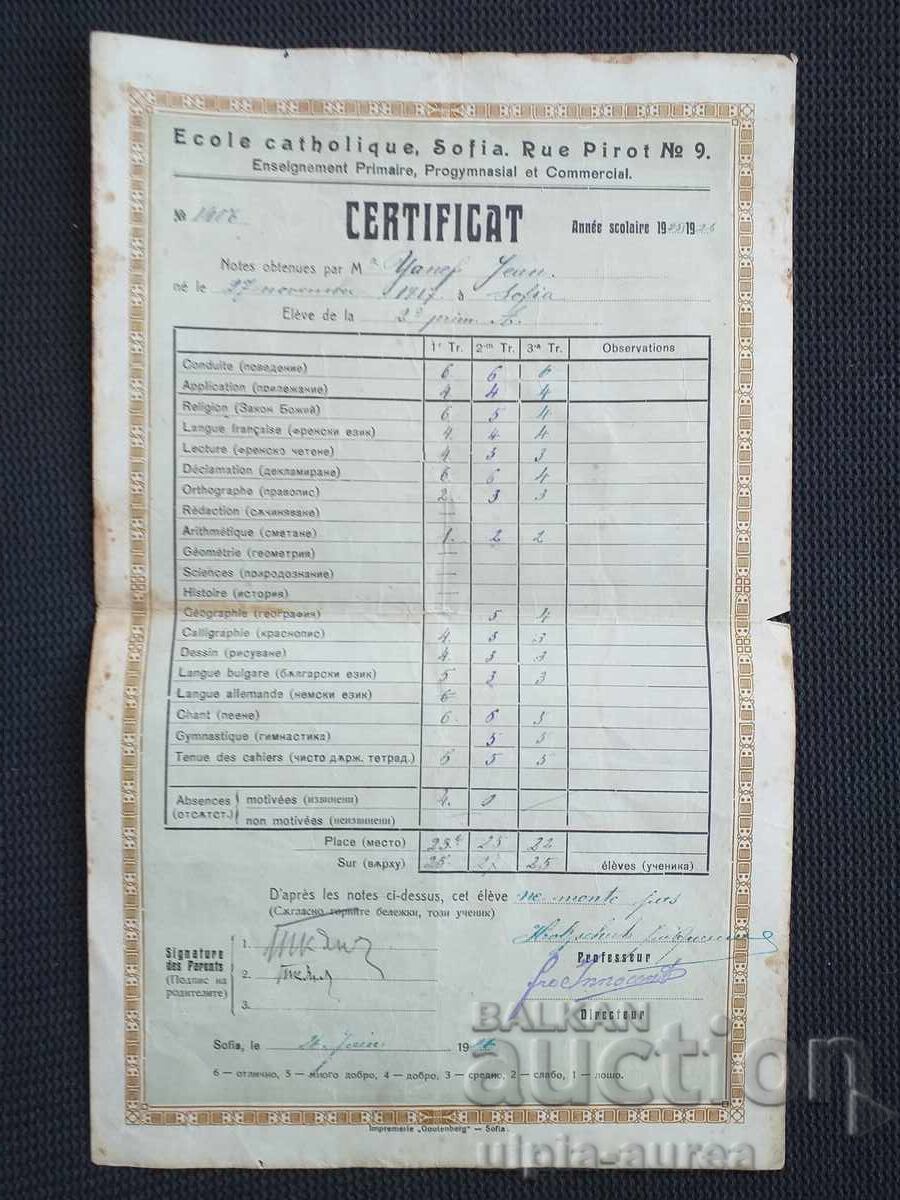 Ecole catholique, Sofia. Rue Pirot № 9.
Enseignement Primaire, Progymnasial et Commercial.
№ CERTIFICAT Année scolaire 1925/1926
Notes obtenues par M Yanef Jean.
né le 27 novembre 1917 à Sofia
Elève de la 2e prim A.
1r Tr. 2-m Tr. 3-e Tr. Observations
Conduite (поведение) 6 6 6
Application (прилежание) 4 4 4
Religion (Закон Божий) 6 5 4
Langue française (френски език) 4 4 4
Lecture (френско четене) 4 3 3
Déclamation (декламиране) 6 6 4
Orthographe (правопис) 2 3 3
Rédaction (съчиняване) —
Arithmétique (сметане) 1. 2 2
Géométrie (геометрия) —
Sciences (природознание) —
Histoire (история) —
Géographie (география) 5 4
Calligraphie (краснопис) 4 3 3
Dessin (рисуване) 4 3 3
Langue bulgare (бѫлгарски език) 5 3 3
Langue allemande (немски език) 6
Chant (пеене) 6 6 5
Gymnastique (гимнастика) 5 5
Tenue des cahiers (чисто държ. тетрад.) 5 5 5
Absences (отсѫтст.) motivées (извинени) 4. 0 —
non motivées (неизвинени)
Place (место) 23e 25 22
Sur (вѫрху) 25 27 25 élèves (ученика)
D'après les notes ci-dessus, cet élève ne monte pas
(Съгласно горните бележки, този ученик)
Professeur
Signature des Parents (Подпис на родителите)
1.
2.
3.
fra Innocent
Directeur
Sofia, le 26 Juin 1926
6 — отлично, 5 — много добро, 4 — добро, 3 — средно, 2 — слабо, 1 — лошо.
Impremerie „Goutenberg" — Sofia.
BALKAN
auction
ulpia-aurea